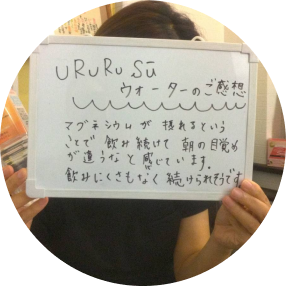 URURU Sū
ウォーターのご感想
マグネシウムが 採れるという
ことで 飲み続けて 朝の目覚め
が違うなと感じています.
飲みにくさもなく続けられそうです